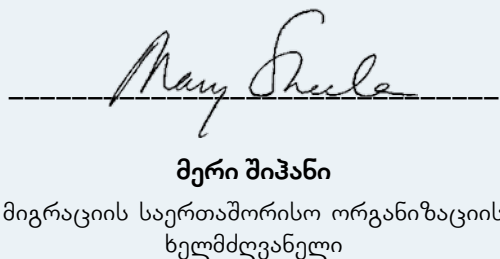 მერი შიჰანი
მიგრაციის საერთაშორისო ორგანიზაციის
ხელმძღვანელი